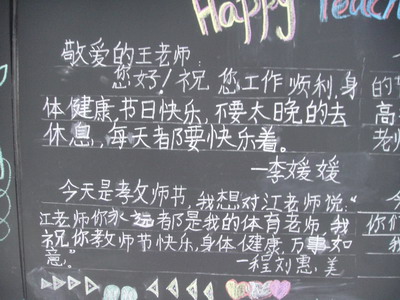 Happy Teach
敬爱的王老师:
您好!祝您工作顺利,身
体健康,节日快乐,不要太晚的去
休息,每天都要快乐着。
—李媛媛
今天是孝文师节,我想对江老师说:“
江老师你永远都是我的体育老师,我
祝你教师节快乐,身体健康,万事如
意。”
—程刘惠.美
的
高
老师
你们